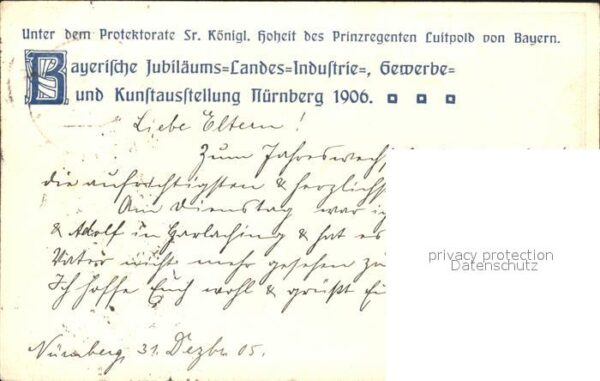 Unter dem Protektorate Sr. Königl. Hoheit des Prinzregenten Luitpold von Bayern.
Bayerische Jubiläums=Landes=Industrie=, Gewerbe=
und Kunstausstellung Nürnberg 1906.
Liebe Eltern!
Zum Jahreswech
die aufrichtigsten & herzlichs
Am Dienstag war i
& Adolf in Harlaching & hat es
Vater nicht mehr gesehen zu
Ich hoffe Euch wohl & grüßt
Nürnberg, 31. Dezbr 05.
privacy protection
Datenschutz